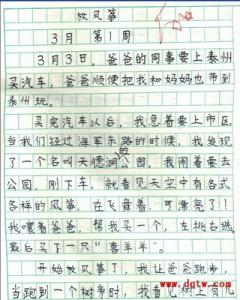 放风筝
3月 第1周
3月3日，爸爸的同事要上泰州
买汽车，爸爸顺便把我和妈妈也带到
泰州玩。
买完汽车以后，我急着要上市区
当我们经过海军东路的时候，我发现
了一个名叫天德湖的公园，我闹着要去
公园，刚下车，就看见天空中有各式
各样的风筝，在飞舞着，可漂亮了！
我嚷着爸爸，帮我买一个，左挑右选
最后买了一只“喜羊羊”。
开始放风筝了，我让爸爸跑步，
当跑到一个树旁时，我看见树上有几
www.dgtw.com